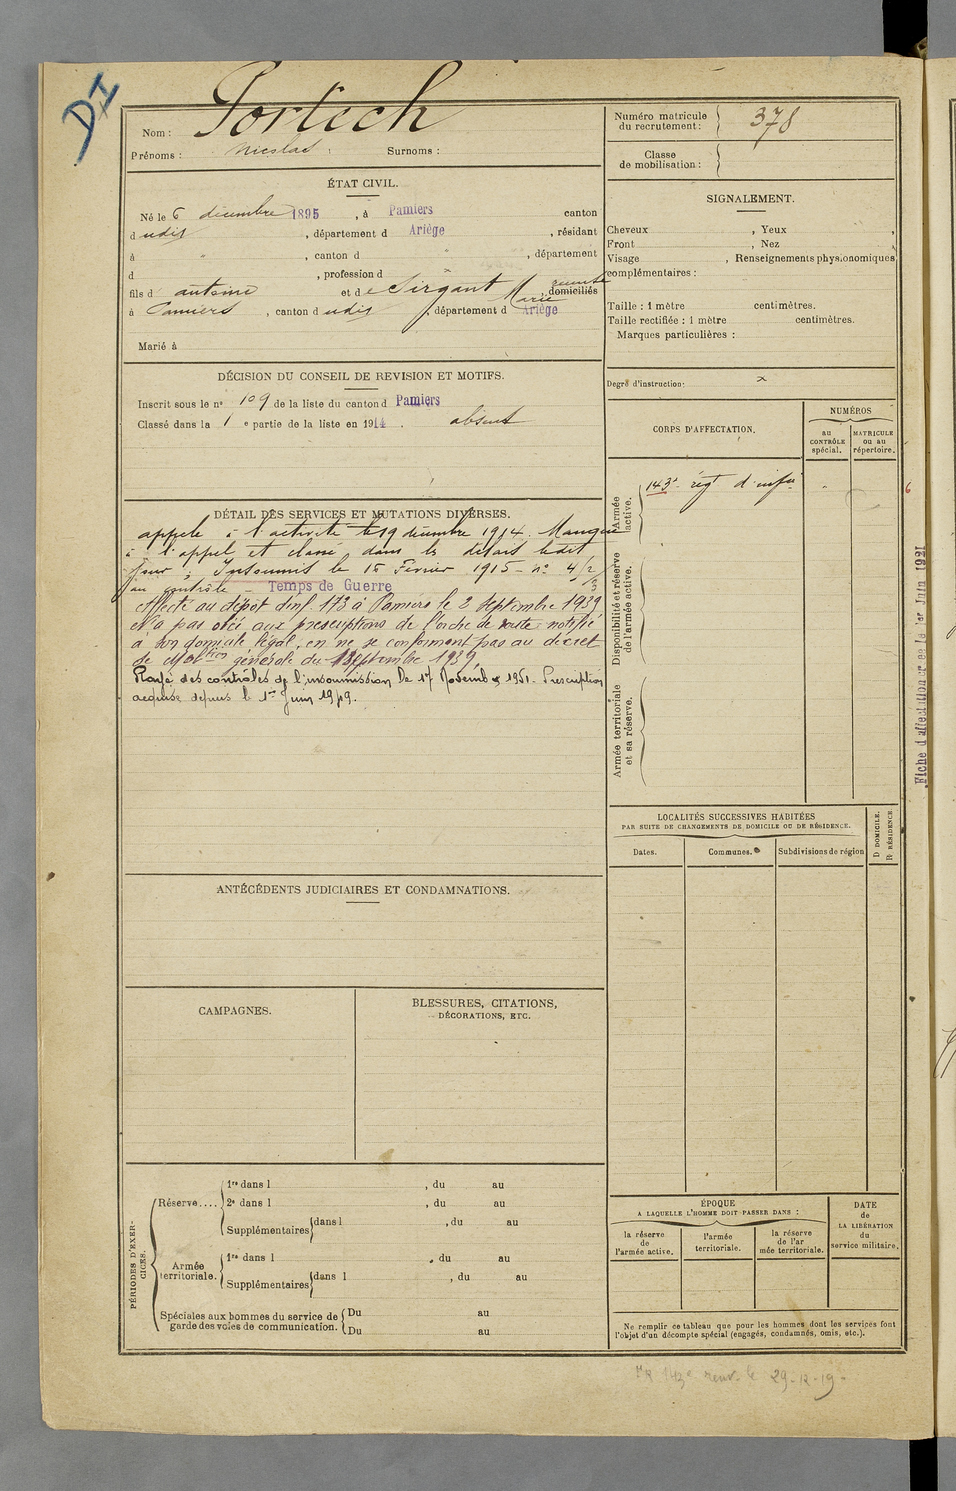 DI
Nom : Portech
Prénoms : Nicolas Surnoms :
Numéro matricule du recrutement : 378
Classe de mobilisation :
ÉTAT CIVIL.
Né le 6 décembre 1895, à Pamiers canton
d udit, département d Ariège, résidant
à ", canton d ", département
d , profession d "
fils d antoine et de Sirgant Marie domiciliés
à Pamiers, canton d udit, département d Ariège
Marié à
SIGNALEMENT.
Cheveux , Yeux ,
Front , Nez
Visage , Renseignements physionomiques
complémentaires :
Taille : 1 mètre centimètres.
Taille rectifiée : 1 mètre centimètres.
Marques particulières :
Degré d'instruction: x
DÉCISION DU CONSEIL DE REVISION ET MOTIFS.
Inscrit sous le n° 109 de la liste du canton d Pamiers
Classé dans la 1 e partie de la liste en 1914. absent
CORPS D'AFFECTATION.
NUMÉROS
au CONTRÔLE spécial.
MATRICULE ou au répertoire.
Armée active.
143e régt d'infie
Disponibilité et réserve de l'armée active.
Armée territoriale et sa réserve.
6
Fiche d'affectation créée le 1er Juin 1921
DÉTAIL DES SERVICES ET MUTATIONS DIVERSES.
appelé à l'activité le 19 décembre 1914. Manque
à l'appel et classé dans les défaut ledit
jour. Insoumis le 15 Février 1915 - n° 4/2
au contrôle - Temps de Guerre
Affecté au dépôt d'inf. 173 à Pamiers le 2 Septembre 1939
N'a pas obéi aux prescriptions de l'ordre de route notifié
à son domicile légal, en ne se conformant pas au décret
de Mobtion générale du 1 Septembre 1939
Rayé des contrôles de l'insoumission le 17 Novembre 1951. Prescription
acquise depuis le 1er Juin 1949.
LOCALITÉS SUCCESSIVES HABITÉES
PAR SUITE DE CHANGEMENTS DE DOMICILE OU DE RÉSIDENCE.
Dates.
Communes.
Subdivisions de région
D DOMICILE.
R RÉSIDENCE.
ANTÉCÉDENTS JUDICIAIRES ET CONDAMNATIONS.
CAMPAGNES.
BLESSURES, CITATIONS,
DÉCORATIONS, ETC.
PÉRIODES D'EXERCICES.
Réserve....
1re dans l , du au
2e dans l , du au
Supplémentaires dans l , du au
Armée territoriale.
1re dans l , du au
Supplémentaires dans l , du au
Spéciales aux hommes du service de garde des voies de communication.
Du au
Du au
ÉPOQUE
A LAQUELLE L'HOMME DOIT PASSER DANS :
la réserve de l'armée active.
l'armée territoriale.
la réserve de l'armée territoriale.
DATE de LA LIBÉRATION du service militaire.
Ne remplir ce tableau que pour les hommes dont les services font
l'objet d'un décompte spécial (engagés, condamnés, omis, etc.).
143e renv. le 29-12-19.